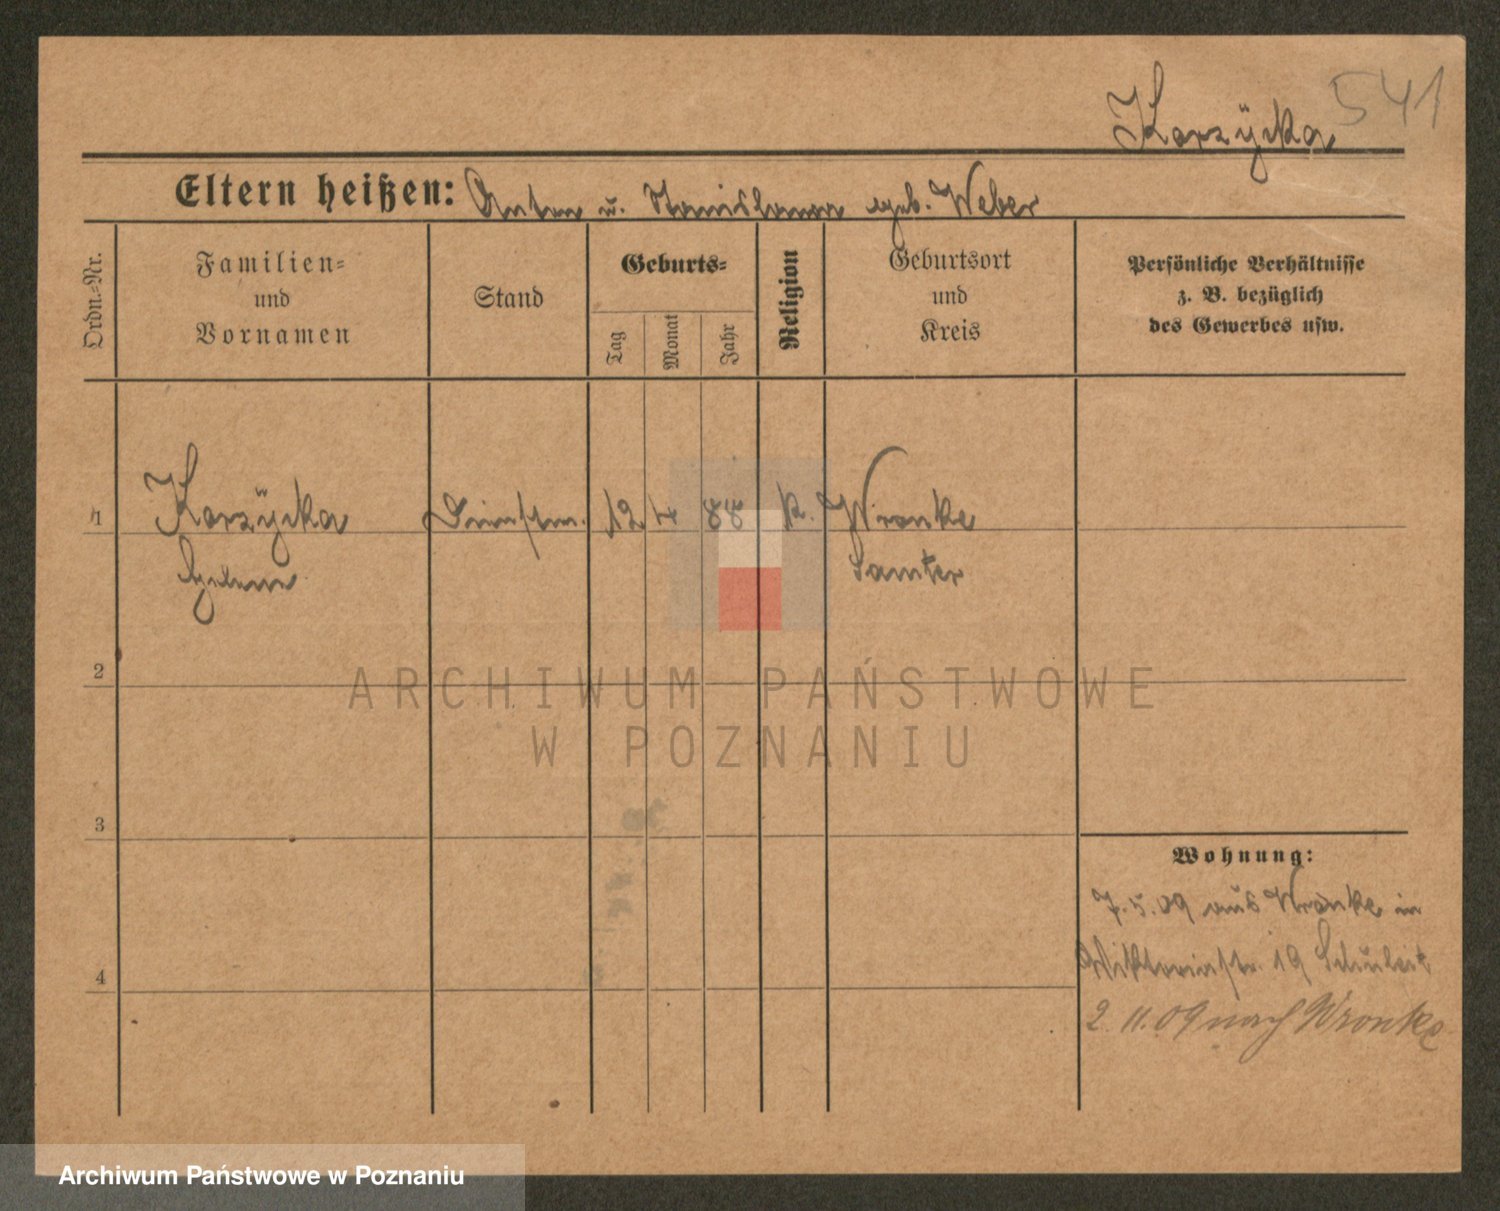 541
Korzÿcka
Eltern heißen: Anton u. Stanislawa geb. Weber
Ordn.-Nr.
Familien-
und
Vornamen
Stand
Geburts-
Tag
Monat
Jahr
Religion
Geburtsort
und
Kreis
Persönliche Verhältnisse
z. B. bezüglich
des Gewerbes usw.
1 Korzÿcka Dienstm. 12 4 88 k. Wronke
Helene Samter
2
3
4
Wohnung:
7.5.09 aus Wronke in
Viktoriastr. 19 Schubert
2.11.09 nach Wronke
ARCHIWUM PAŃSTWOWE
W POZNANIU
Archiwum Państwowe w Poznaniu